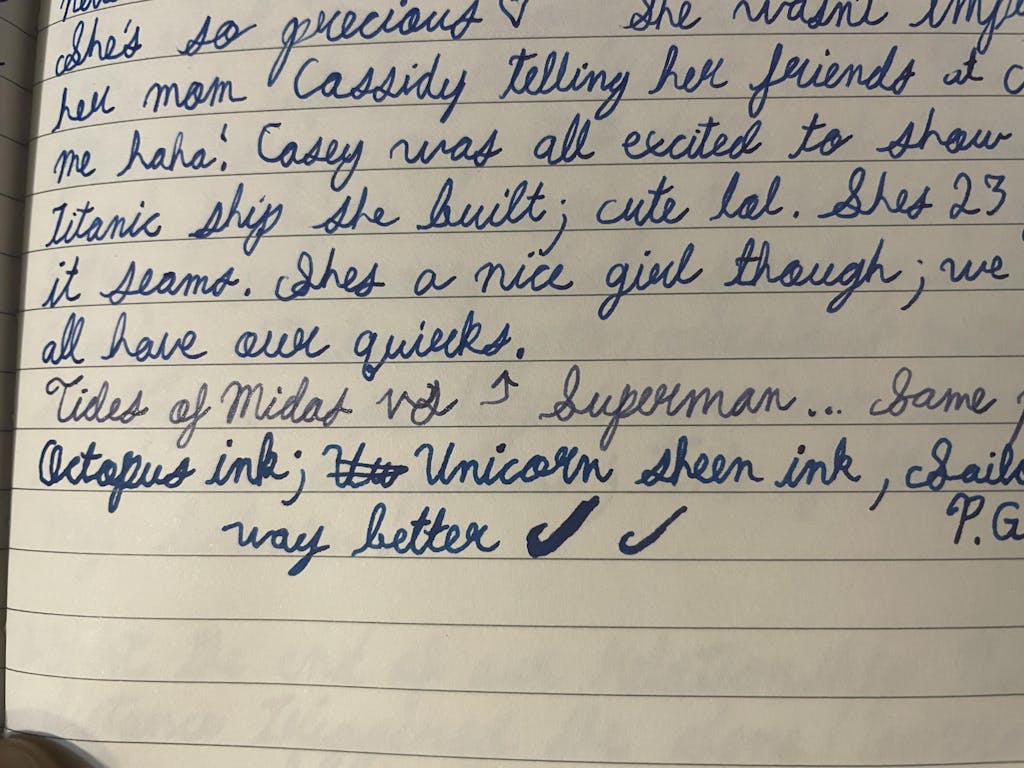 She's so precious ♡ She wasn't
her mom Cassidy telling her friends at
me haha! Casey was all excited to show
Titanic ship she built; cute lol. Shes 23
it seams. Shes a nice girl though; we
all have our quierks.
Tides of Midas vs ↑ Superman... Same
Octopus ink; Unicorn sheen ink,
way better ✓ ✓ P.G